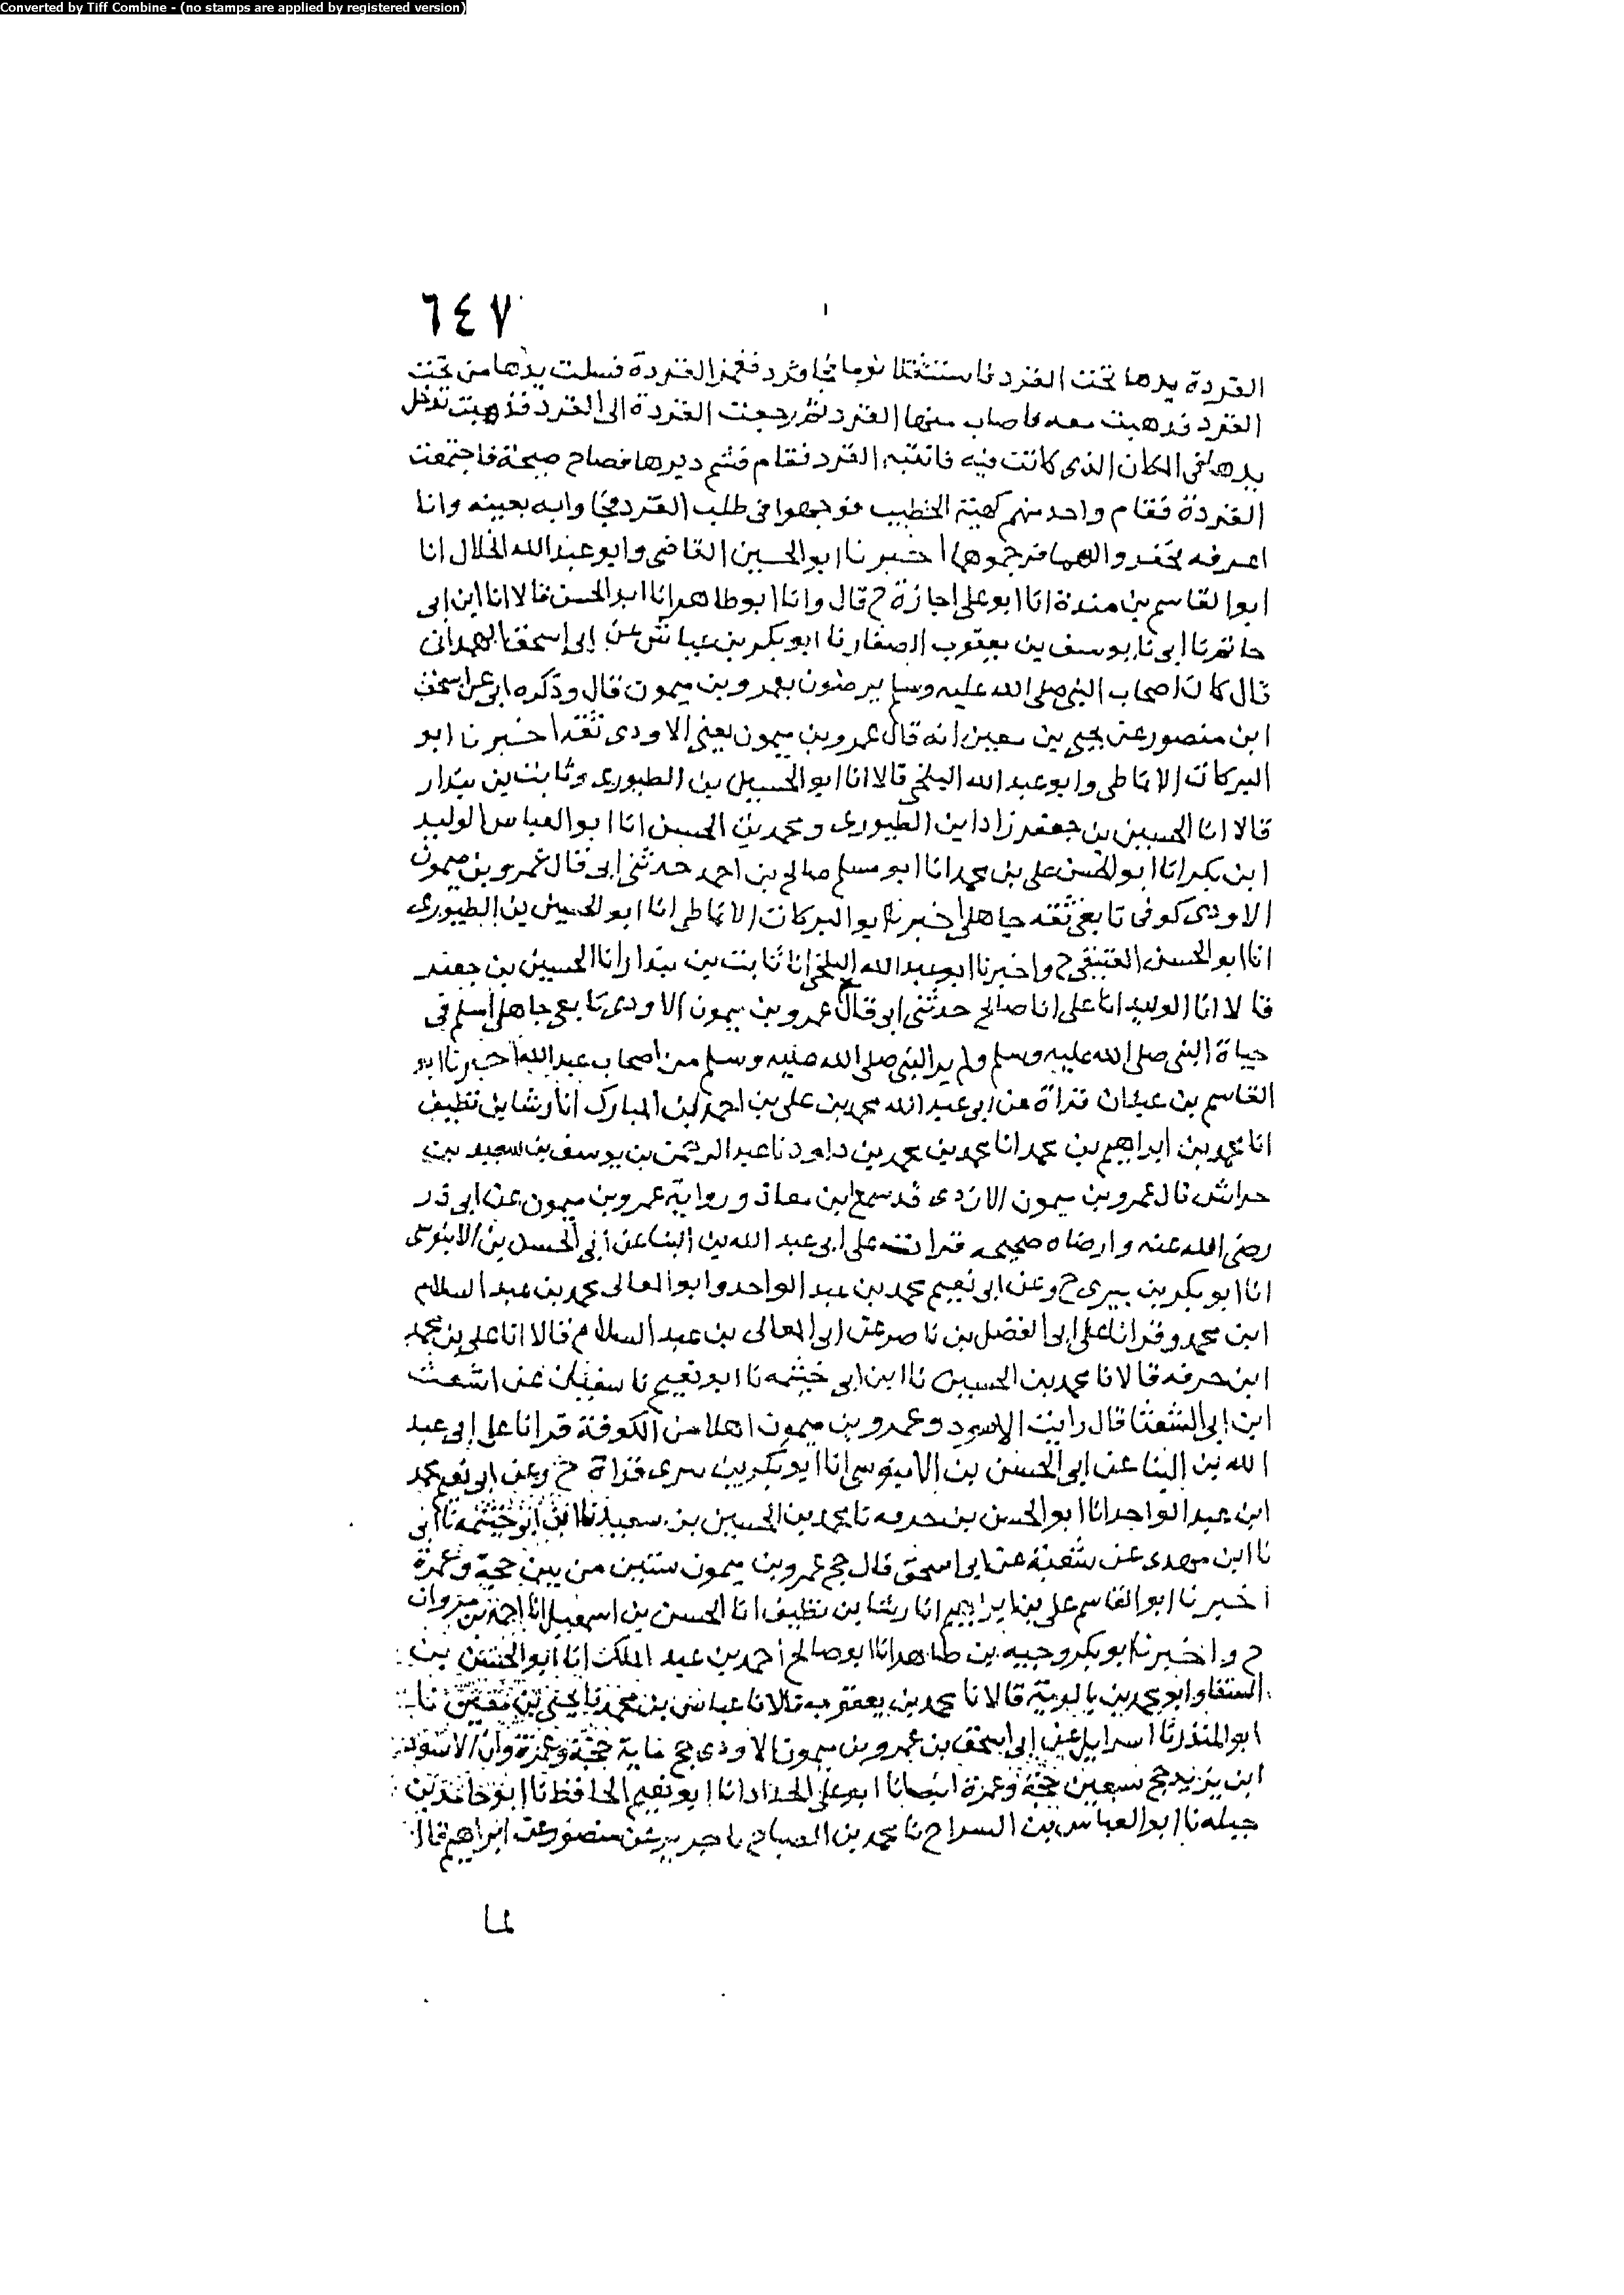 Converted by Tiff Combine - (no stamps are applied by registered version)
٦٤٧
القردة يدها تحت القرد فاستثقلا نوما فجا قرد فغمز القردة فسلت يدها من تحت
القرد فذهبت معه فاصاب منها القرد ثم رجعت القردة الى القرد فذهبت تدخل
يدها في المكان الذي كانت فيه فانتبه القرد فقام فشم دبرها فصاح صيحة فاجتمعت
القردة فقام واحد منهم كهيئة الخطيب فوجهوا في طلب القرد فجي وابه بعينه وانا
اعرفه فحفروا لهما فرجموهما اخبرنا ابو الحسين القاضي وابو عبد الله الخلال انا
ابو القاسم بن مندة انا ابو علي اجازة ح قال وانا ابو طاهر انا ابو الحسن قالا انا ابن ابي
حاتم نا ابي نا يوسف بن يعقوب الصفار نا ابو بكر بن عياش عن ابي اسحق الهمداني
قال كان اصحاب النبي صلى الله عليه وسلم يرضون بعمرو بن ميمون قال وذكره ابي عن اسحق
ابن منصور عن يحيى بن معين انه قال عمرو بن ميمون يعني الاودي ثقة اخبرنا ابو
البركات الانماطي وابو عبد الله البلخي قالا انا ابو الحسين بن الطيوري وثابت بن بندار
قالا انا الحسين بن جعفر زاد ابن الطيوري ومحمد بن الحسن انا ابو العباس الوليد
ابن بكر انا ابو الحسن علي بن محمد انا ابو مسلم صالح بن احمد حدثني ابي قال عمرو بن ميمون
الاودي كوفي تابعي ثقة جاهلي اخبرنا ابو البركات الانماطي انا ابو الحسين بن الطيوري
انا ابو الحسن العتيقي ح واخبرنا ابو عبد الله البلخي انا ثابت بن بندار انا الحسين بن جعفر
قالا انا الوليد انا علي انا صالح حدثني ابي قال عمرو بن ميمون الاودي تابعي جاهلي اسلم في
حياة النبي صلى الله عليه وسلم ولم ير النبي صلى الله عليه وسلم من اصحاب عبد الله اخبرنا ابو
القاسم بن عبدان قراة عن ابي عبد الله محمد بن علي بن احمد بن المبارك انا رشا بن نظيف
انا محمد بن ابراهيم بن محمد انا محمد بن محمد بن داود نا عبد الرحمن بن يوسف بن سعيد بن
خراش قال عمرو بن ميمون الازدي قد سمع ابن معاذ ورواية عمرو بن ميمون عن ابي ذر
رضي الله عنه وارضاه صحيحه قراته على ابي عبد الله بن البنا عن ابي الحسن بن الابنوسي
انا ابو بكر بن بيري ح وعن ابي نعيم محمد بن عبد الواحد وابو المعالي محمد بن عبد السلام
ابن محمد وقرانا على ابي الفضل بن ناصر عن ابي المعالي بن عبد السلام قالا انا علي بن محمد
ابن حرفه قالا نا محمد بن الحسين نا ابن ابي خيثمه نا ابو نعيم نا سفيان عن اشعث
ابن ابي الشعثا قال رايت الاسود وعمرو بن ميمون اهلا من الكوفة قرانا على ابي عبد
الله بن البنا عن ابي الحسن بن الابنوسي انا ابو بكر بن سرى قراة ح وعن ابي نعيم محمد
ابن عبد الواحد انا ابو الحسن بن حرفه نا محمد بن الحسين بن سعيد نا ابن ابو خيثمه نا ابي
نا ابن مهدي عن شعبة عن ابي اسحق قال حج عمرو بن ميمون ستين من بين حجة وعمرة
اخبرنا ابو القاسم علي بن ابراهيم انا رشا بن نظيف انا الحسن بن اسمعيل انا احمد بن مروان
ح واخبرنا ابو بكر وجيه بن طاهر انا ابو صالح احمد بن عبد الملك انا ابو الحسن بن
السقا وابو محمد بن بالوية قالا نا محمد بن يعقوب قالا نا عباس بن محمد نا يحيى بن معين نا
ابو المنذر نا اسراييل عن ابي اسحق بن عمرو بن ميمون الاودي حج ماية حجة وعمرة وان الاسود
ابن يزيد حج سبعين حجة وعمرة انبانا ابو علي الحداد انا ابو نعيم الحافظ نا ابو حامد بن
جبله نا ابو العباس بن السراج نا محمد بن الصباح نا جرير عن منصور عن ابراهيم قال
لما